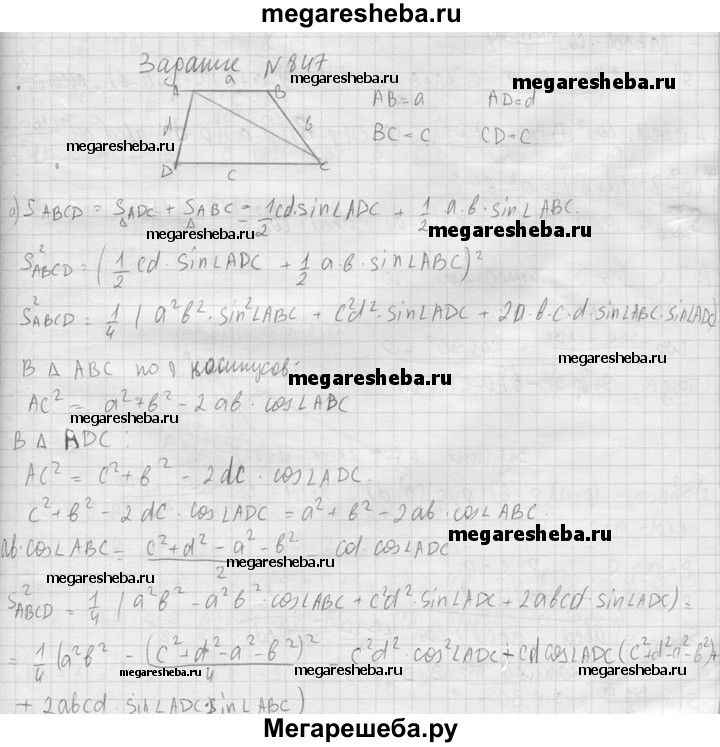 megaresheba.ru
Задание №847
a
megaresheba.ru
megaresheba.ru
A B
AB=a AD=d
d b
megaresheba.ru
BC=c CD=c
D C
c
а) S ABCD = S ADC + S ABC = 1/2 cd·sin∠ADC + 1/2 a·b·sin∠ABC.
Δ Δ
megaresheba.ru
megaresheba.ru
S²ABCD = (1/2 cd·sin∠ADC + 1/2 a·b·sin∠ABC)²
S²ABCD = 1/4 (a²b²·sin²∠ABC + c²d²·sin∠ADC + 2a·b·c·d·sin∠ABC·sin∠ADC)
В Δ ABC по косинусов:
megaresheba.ru
AC² = a²+b² - 2ab·cos∠ABC
megaresheba.ru
В Δ ADC:
AC² = c²+b² - 2dc·cos∠ADC.
c²+b² - 2dc·cos∠ADC = a²+b²-2ab·cos∠ABC.
megaresheba.ru
ab·cos∠ABC = (c²+d²-a²-b²)/2 - cd·cos∠ADC
megaresheba.ru
megaresheba.ru
S²ABCD = 1/4 (a²b² - a²b²·cos∠ABC + c²d²·sin∠ADC + 2abcd·sin∠ADC) =
megaresheba.ru
= 1/4 (a²b² - (c²+d²-a²-b²)²/4 - c²d²·cos²∠ADC + cd cos∠ADC (c²+d²-a²-b²)+
megaresheba.ru
megaresheba.ru
megaresheba.ru
+ 2abcd·sin∠ADC·sin∠ABC)
Мегарешеба.ру